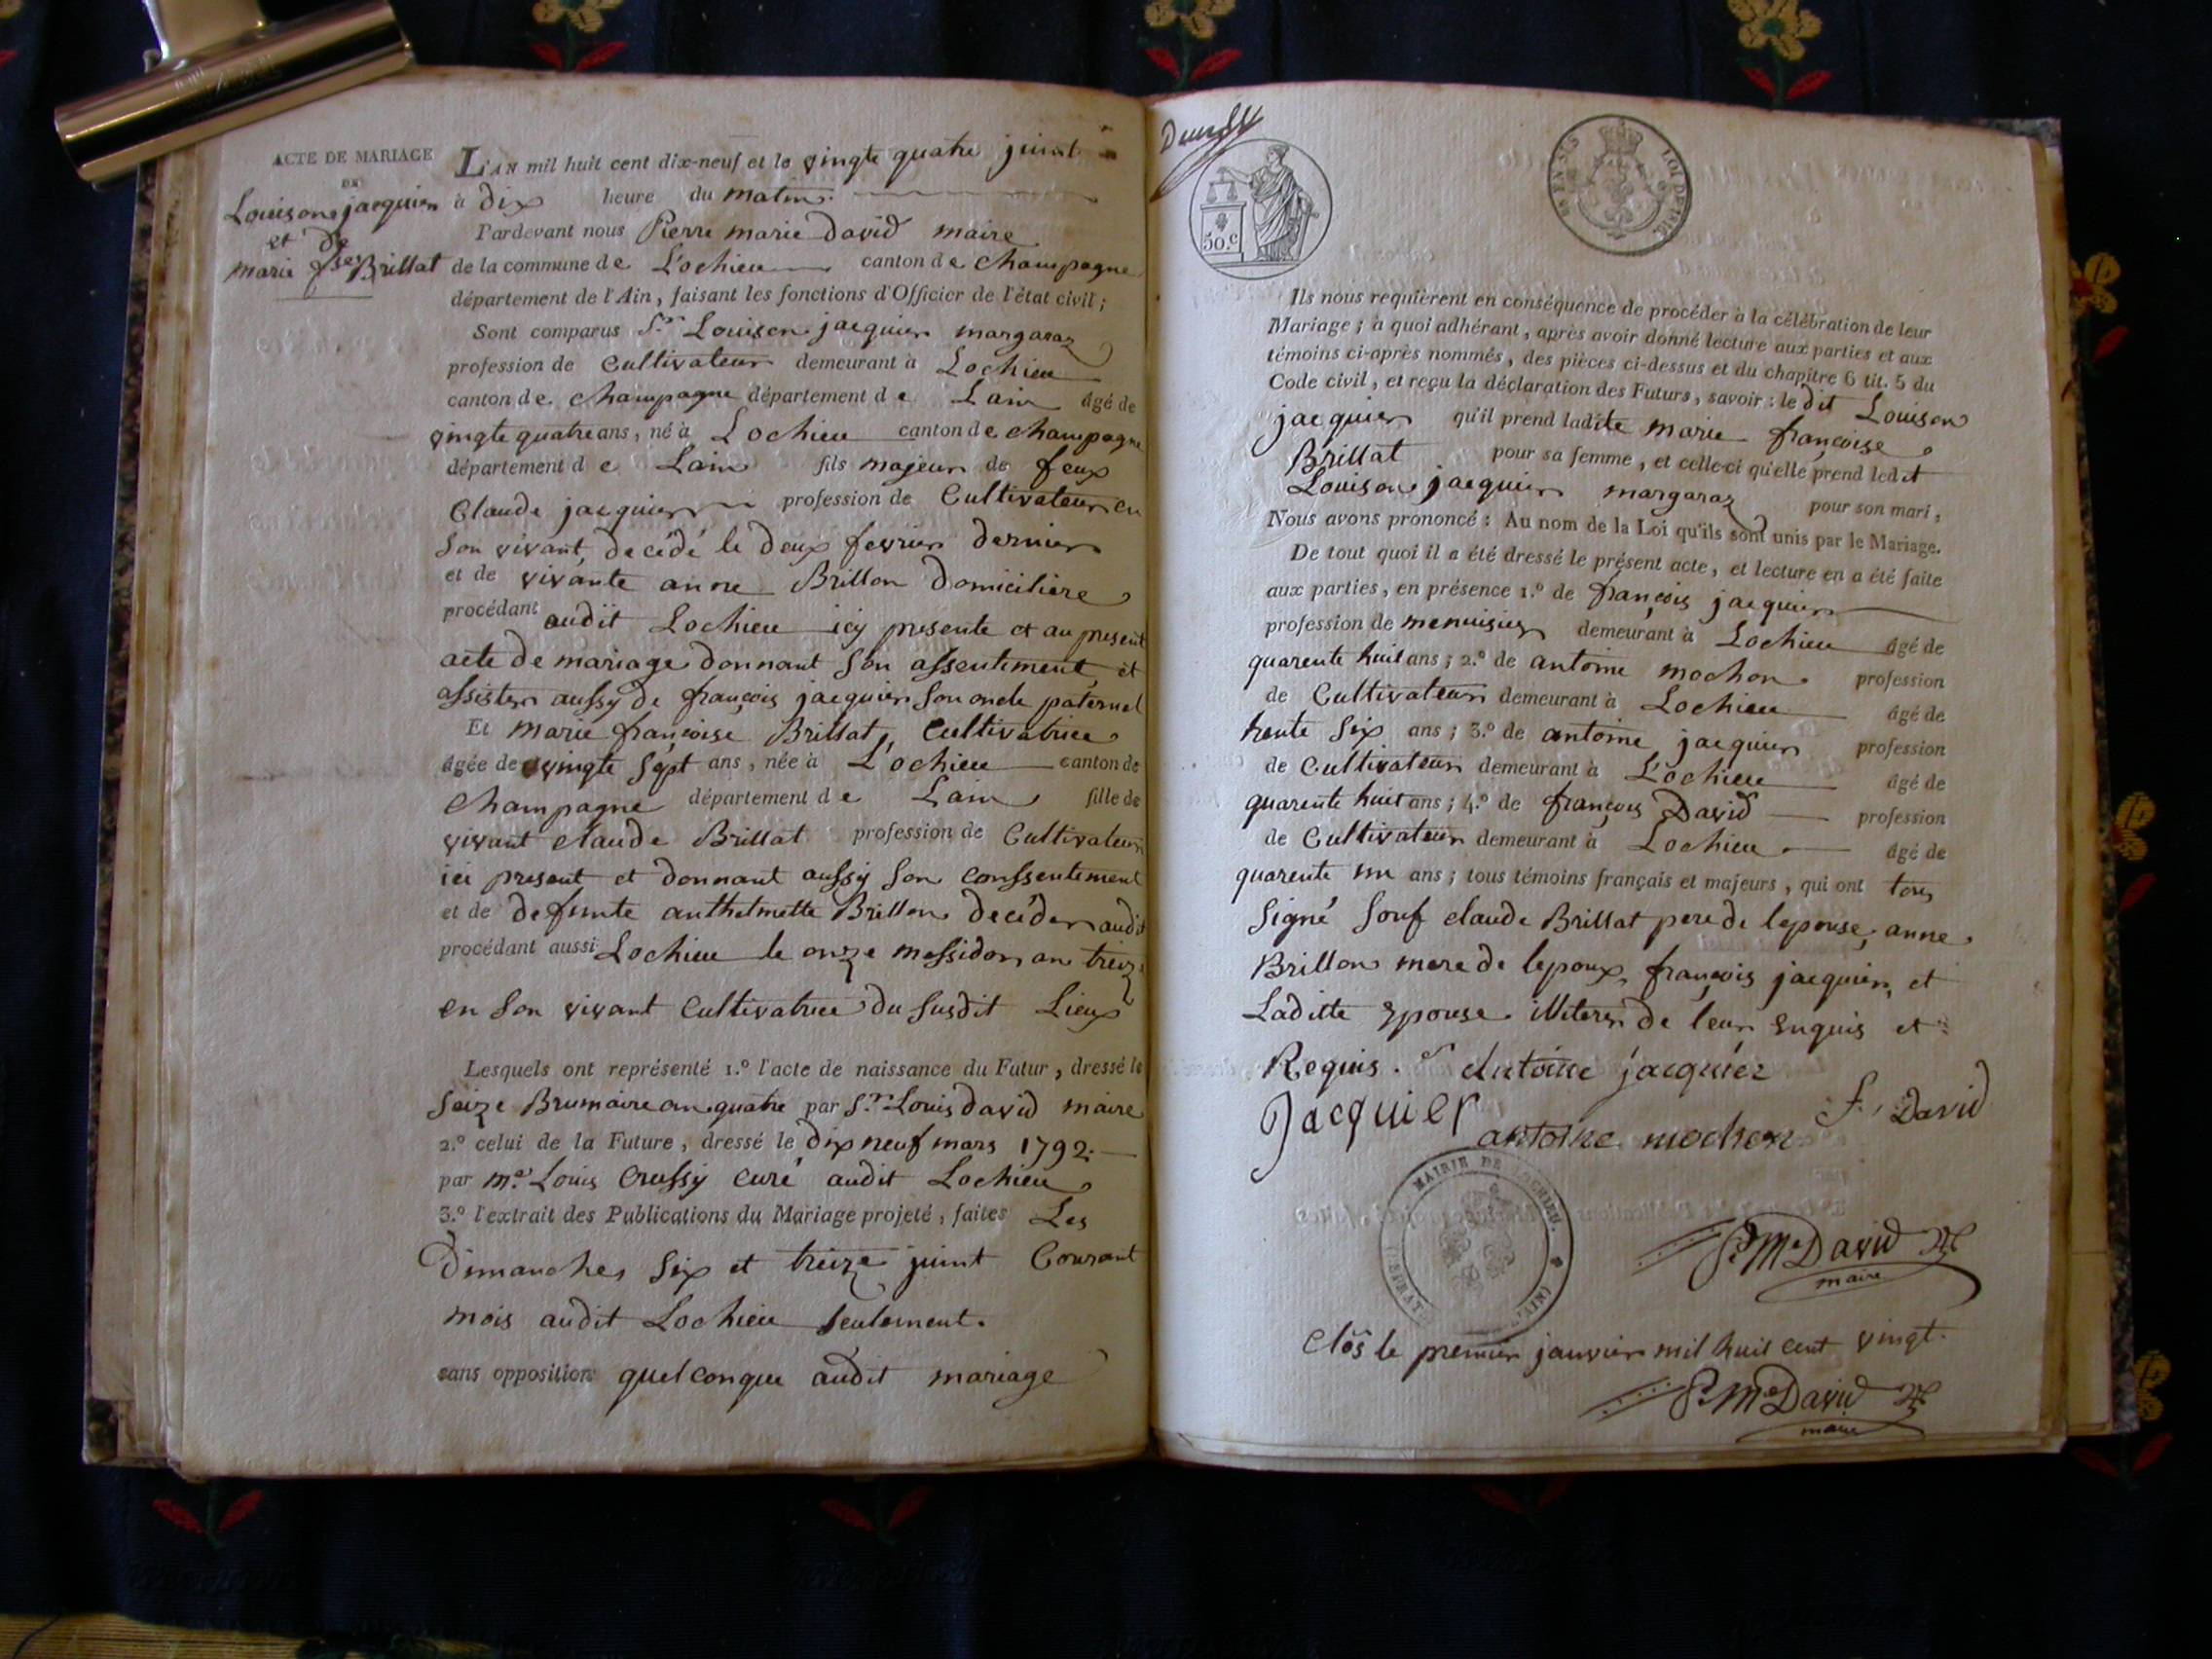 ACTE DE MARIAGE
DE
Louison jacquier
et de
marie fse Brillat
L'AN mil huit cent dix-neuf et le vingte quatre juint
à dix heure du matin.
Pardevant nous Pierre marie david maire
de la commune de Lochieu canton de Champagne
département de l'Ain, faisant les fonctions d'Officier de l'état civil ;
Sont comparus Sr. Louison jacquier margaraz
profession de Cultivateur demeurant à Lochieu
canton de Champagne département de Lain âgé de
vingte quatre ans, né à Lochieu canton de Champagne
département de Lain fils majeur de feux
Claude jacquier profession de Cultivateur en
son vivant décédé le deux fevrier dernier
et de vivante anne Brillon domiciliere
procédant audit Lochieu icy presente et au present
acte de mariage donnant son assentiment et
assister aussy de françois jacquier son oncle paternel
Et marie françoise Brillat, Cultivatrice
âgée de vingte sept ans, née à Lochieu canton de
Champagne département de Lain fille de
vivant claude Brillat profession de Cultivateur
ici present et donnant aussy son conssentement
et de defunte anthelmette Brillon décéder audit
procédant aussi Lochieu le onze messidor an treize
en son vivant Cultivatrice du susdit Lieux
Lesquels ont représenté 1.° l'acte de naissance du Futur, dressé le
Seize Brumaire an quatre par Sr. Louis david maire
2.° celui de la Future, dressé le dix neuf mars 1792.
par me. Louis Crussy curé audit Lochieu
3.° l'extrait des Publications du Mariage projeté, faites Les
Dimanches Six et treize juint Courant
mois audit Lochieu seulement.
sans opposition quelconque audit mariage
50.c
LOI DE 1816
Ils nous requièrent en conséquence de procéder à la célébration de leur
Mariage ; à quoi adhérant, après avoir donné lecture aux parties et aux
témoins ci-après nommés, des pièces ci-dessus et du chapitre 6 tit. 5 du
Code civil, et reçu la déclaration des Futurs, savoir : le dit Louison
jacquier qu'il prend ladite marie françoise
Brillat pour sa femme, et celle-ci qu'elle prend ledit
Louison jacquier margaraz pour son mari,
Nous avons prononcé : Au nom de la Loi qu'ils sont unis par le Mariage.
De tout quoi il a été dressé le présent acte, et lecture en a été faite
aux parties, en présence 1.° de françois jacquier
profession de menuisier demeurant à Lochieu âgé de
quarente huit ans ; 2.° de antoine mochon profession
de Cultivateur demeurant à Lochieu âgé de
trente Six ans ; 3.° de antoine jacquier profession
de Cultivateur demeurant à Lochieu âgé de
quarente huit ans ; 4.° de françois David profession
de Cultivateur demeurant à Lochieu âgé de
quarente un ans ; tous témoins français et majeurs, qui ont tous
Signé Souf claude Brillat pere de lepouse, anne
Brillon mere de lepoux, françois jacquier, et
Laditte Epouse illiterer de leur enquis et
Requis. Antoine jacquier
Jacquier antoine mochon f. David
MAIRIE DE LOCHIEU. (AIN)
P. Me David
maire
Clos le premier janvier mil huit cent vingt.
P. Me David
maire